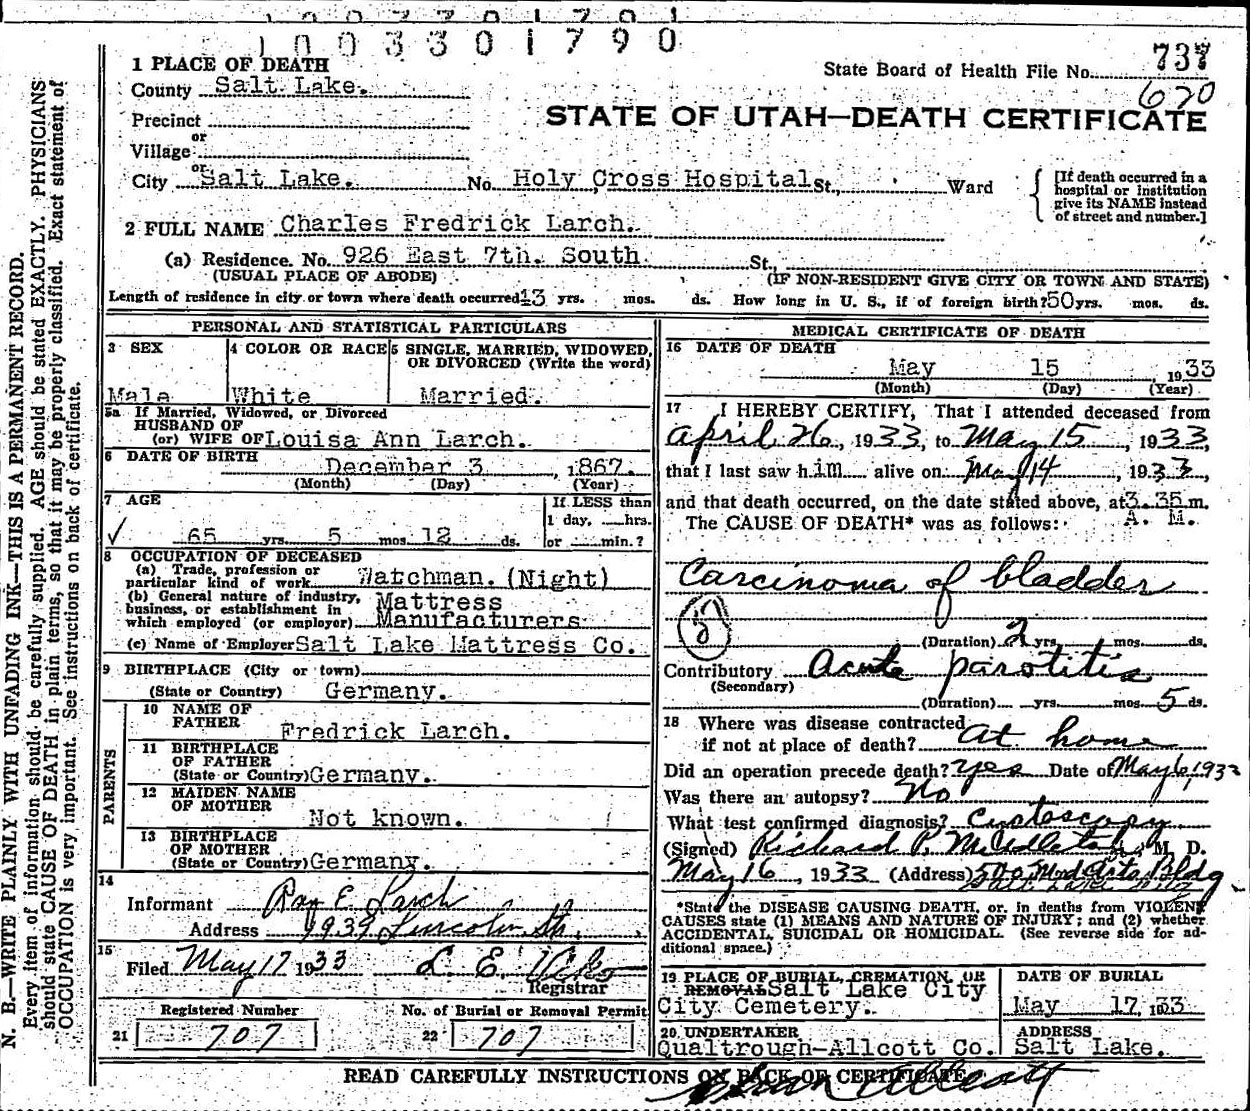 1003301790
1 PLACE OF DEATH
County Salt Lake.
State Board of Health File No. 737
670
STATE OF UTAH—DEATH CERTIFICATE
Precinct
or
Village
or
City Salt Lake. No. Holy Cross Hospital St., Ward
[If death occurred in a hospital or institution give its NAME instead of street and number.]
2 FULL NAME Charles Fredrick Larch.
(a) Residence. No. 926 East 7th. South St.,
(USUAL PLACE OF ABODE) (IF NON-RESIDENT GIVE CITY OR TOWN AND STATE)
Length of residence in city or town where death occurred 43 yrs. mos. ds. How long in U. S., if of foreign birth? 50 yrs. mos. ds.
PERSONAL AND STATISTICAL PARTICULARS
3 SEX
Male
4 COLOR OR RACE
White
5 SINGLE, MARRIED, WIDOWED, OR DIVORCED (Write the word)
Married.
5a If Married, Widowed, or Divorced
HUSBAND OF
(or) WIFE OF Louisa Ann Larch.
6 DATE OF BIRTH
December 3, 1867.
(Month) (Day) (Year)
7 AGE
65 yrs. 5 mos. 12 ds.
If LESS than
1 day, hrs.
or min.?
8 OCCUPATION OF DECEASED
(a) Trade, profession or
particular kind of work Watchman. (Night)
(b) General nature of industry,
business, or establishment in
which employed (or employer) Mattress Manufacturers
(c) Name of Employer Salt Lake Mattress Co.
9 BIRTHPLACE (City or town)
(State or Country) Germany.
PARENTS
10 NAME OF
FATHER Fredrick Larch.
11 BIRTHPLACE
OF FATHER
(State or Country) Germany.
12 MAIDEN NAME
OF MOTHER Not known.
13 BIRTHPLACE
OF MOTHER
(State or Country) Germany.
14
Informant Ray E. Larch
Address 1939 Lincoln St.
15
Filed May 17 1933 L. E.
Registrar
Registered Number
21 707
No. of Burial or Removal Permit
22 707
MEDICAL CERTIFICATE OF DEATH
16 DATE OF DEATH
May 15 1933
(Month) (Day) (Year)
17 I HEREBY CERTIFY, That I attended deceased from
April 26, 1933, to May 15, 1933,
that I last saw him alive on May 14, 1933,
and that death occurred, on the date stated above, at 3.35 m.
A. M.
The CAUSE OF DEATH* was as follows:
Carcinoma of bladder
(Duration) 2 yrs. mos. ds.
Contributory Acute parotitis
(Secondary)
(Duration) yrs. mos. 5 ds.
18 Where was disease contracted
if not at place of death? At home
Did an operation precede death? Yes Date of May 6, 1933
Was there an autopsy? No
What test confirmed diagnosis? Cystoscopy
(Signed) Richard P. Middleton, M. D.
May 16, 1933 (Address) 500 Med Arts Bldg
Salt Lake City
*State the DISEASE CAUSING DEATH, or, in deaths from VIOLENT
CAUSES state (1) MEANS AND NATURE OF INJURY; and (2) whether
ACCIDENTAL, SUICIDAL OR HOMICIDAL. (See reverse side for ad-
ditional space.)
19 PLACE OF BURIAL, CREMATION, OR
REMOVAL Salt Lake City
City Cemetery.
DATE OF BURIAL
May 17, 1933
20 UNDERTAKER
Qualtrough-Allcott Co.
ADDRESS
Salt Lake.
READ CAREFULLY INSTRUCTIONS ON BACK OF CERTIFICATE
N. B.—WRITE PLAINLY WITH UNFADING INK—THIS IS A PERMANENT RECORD.
Every item of information should be carefully supplied. AGE should be stated EXACTLY. PHYSICIANS
should state CAUSE OF DEATH in plain terms, so that it may be properly classified. Exact statement of
OCCUPATION is very important. See instructions on back of certificate.